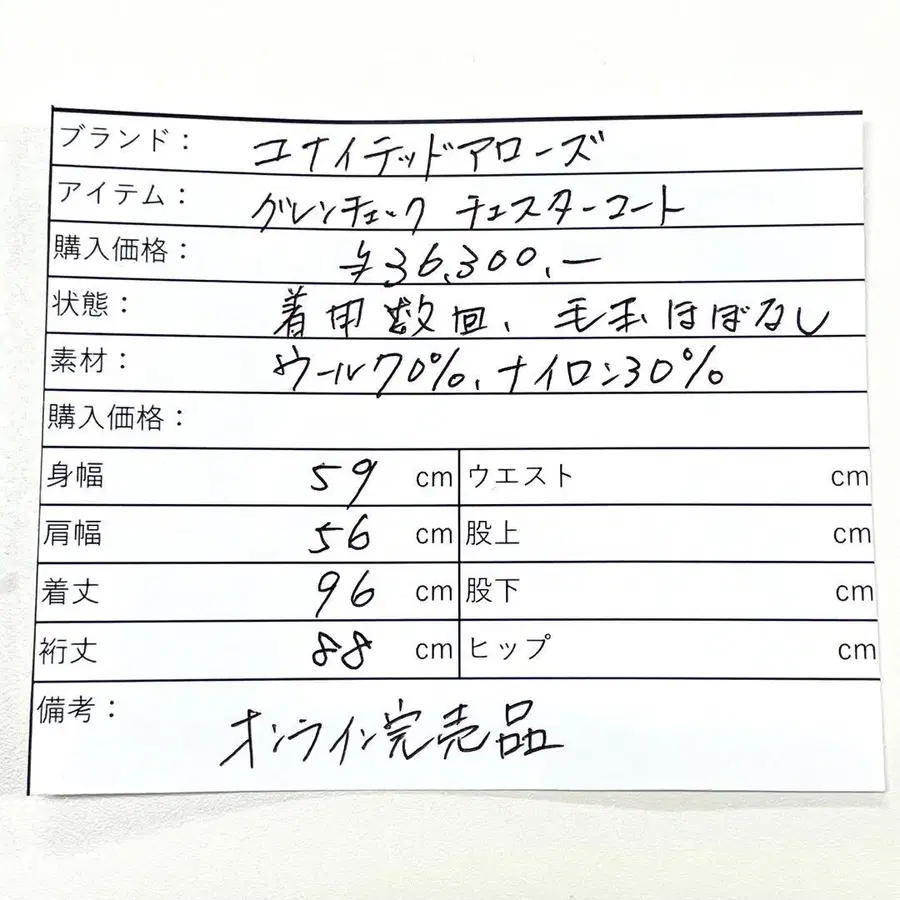 ブランド： ユナイテッドアローズ
アイテム： グレンチェック チェスターコート
購入価格： ¥36,300.ー
状態： 着用数回、毛玉ほぼなし
素材： ウール70%、ナイロン30%
購入価格：
身幅 59 cm ウエスト cm
肩幅 56 cm 股上 cm
着丈 96 cm 股下 cm
裄丈 88 cm ヒップ cm
備考： オンライン完売品